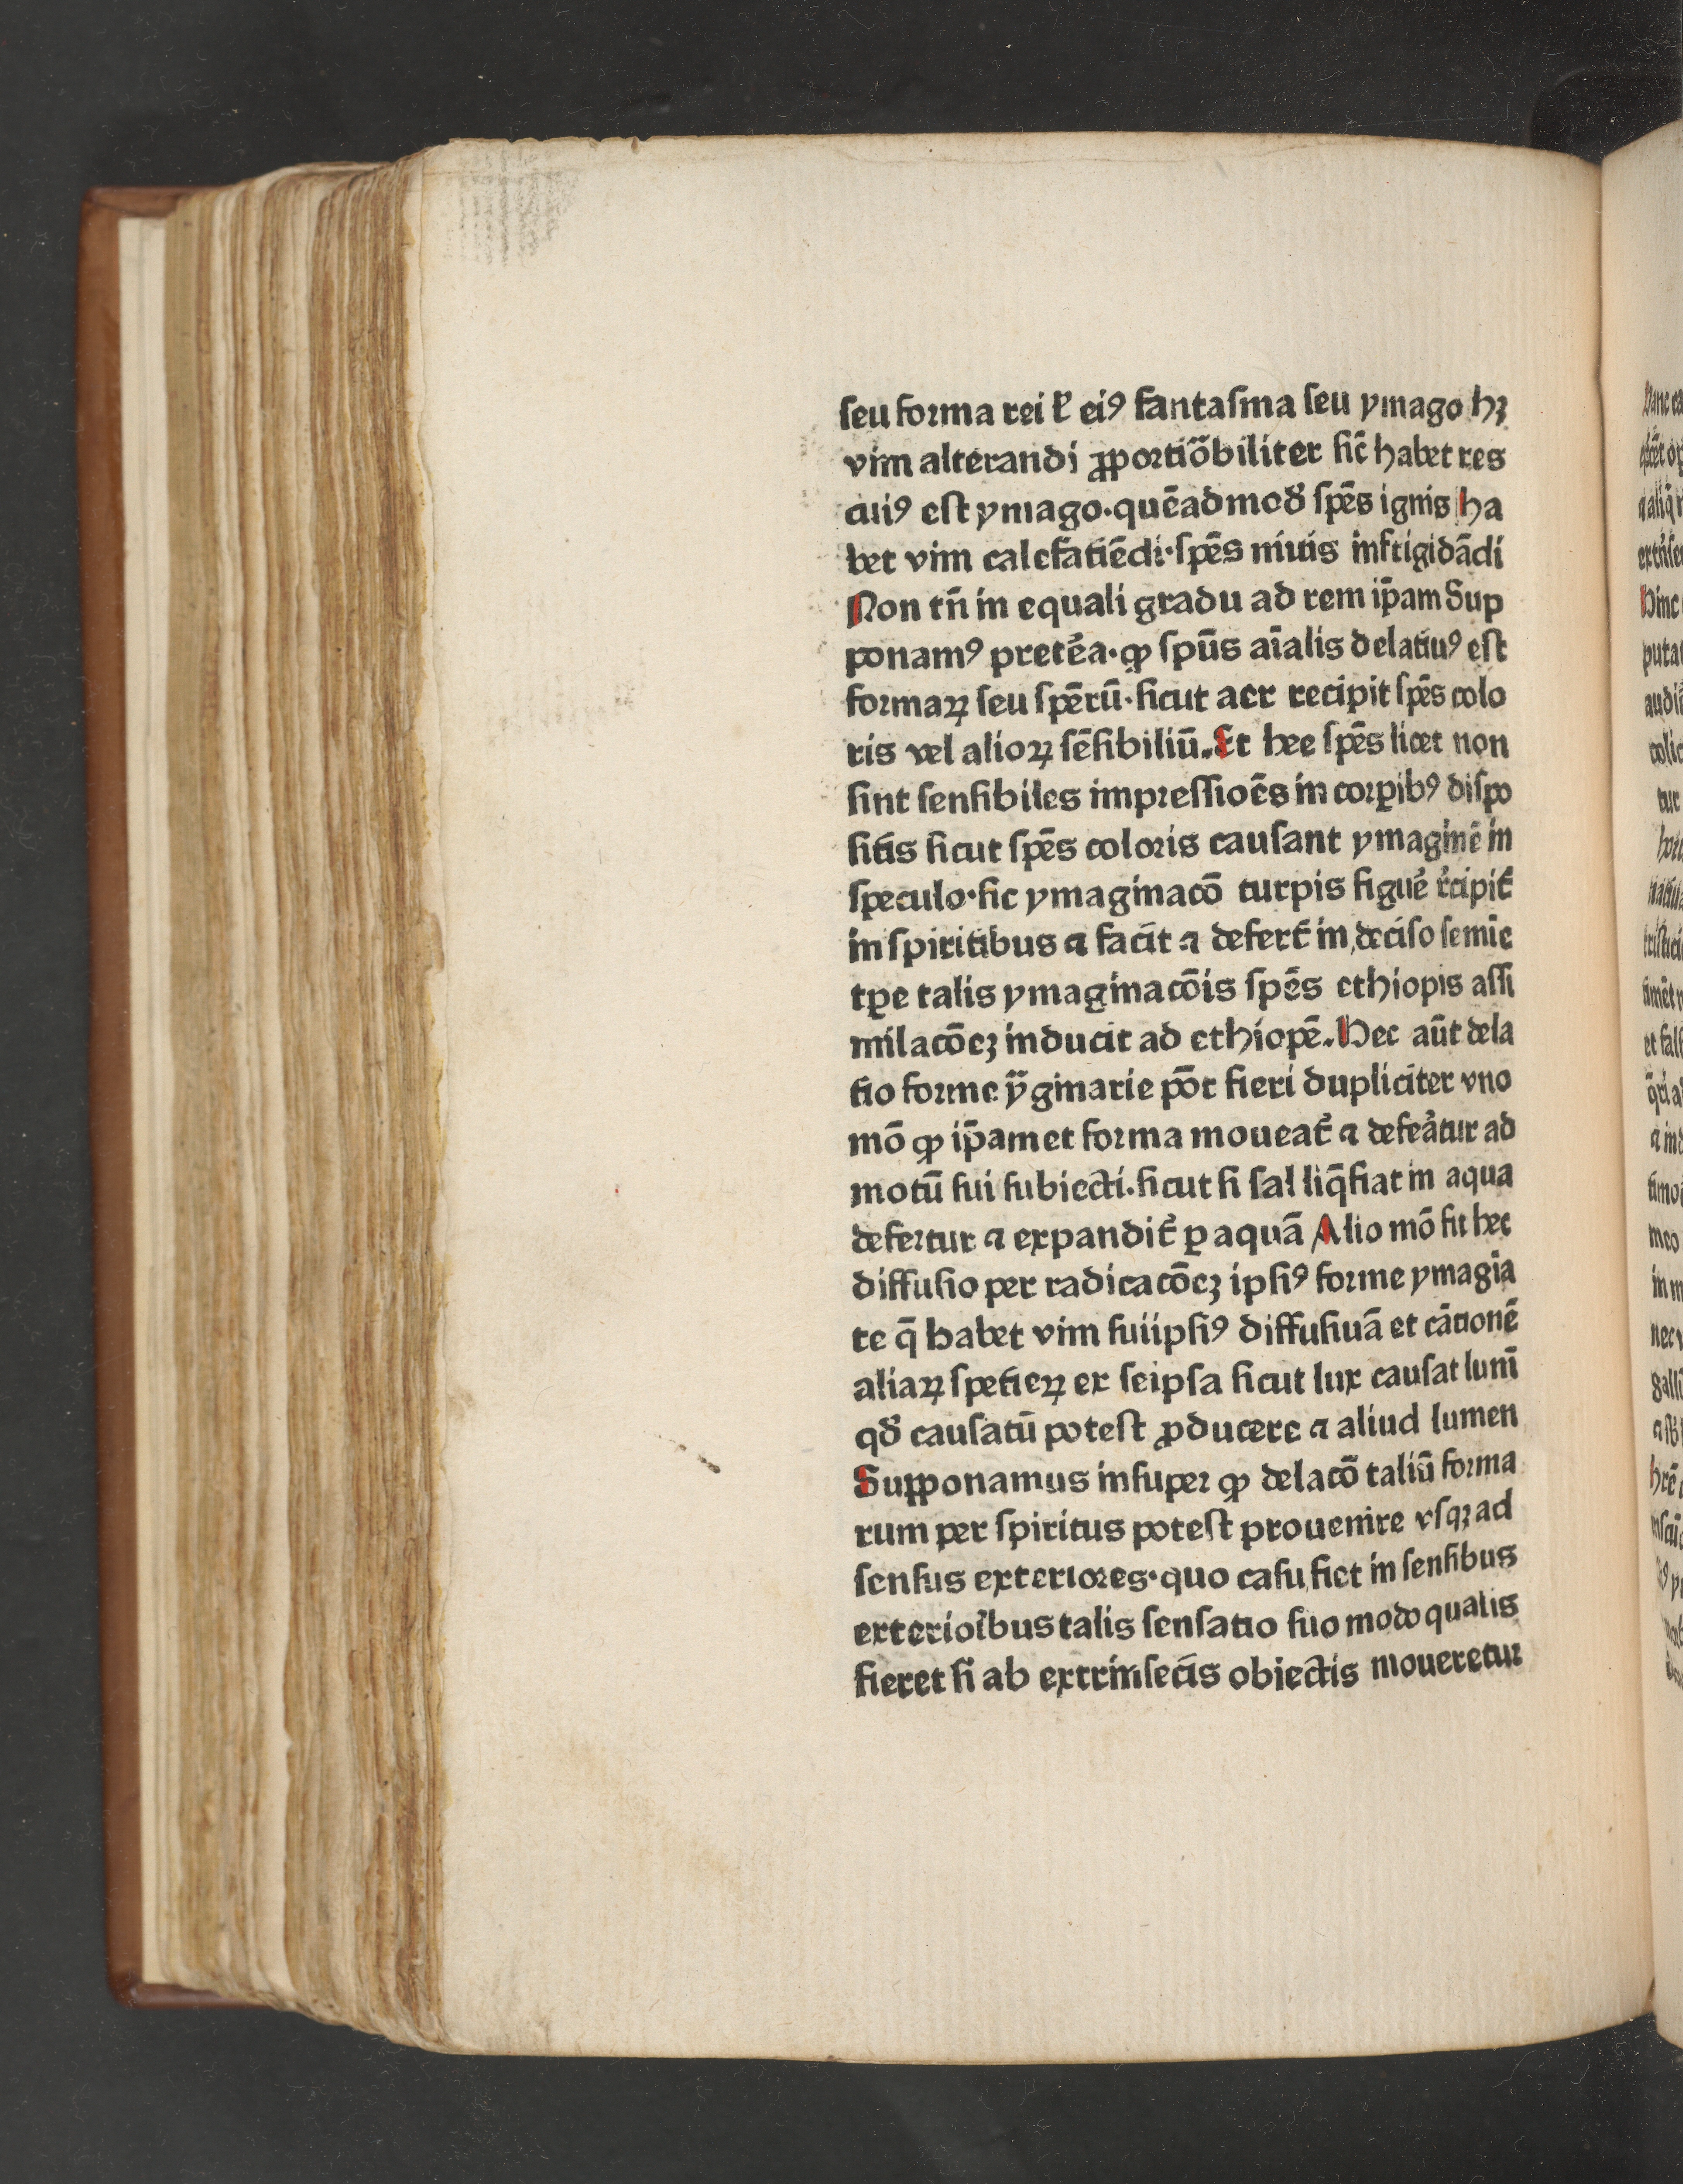 ſeu forma rei ł eiꝰ fantaſma ſeu ymago hꝫ
vim alterandi ꝓportiōbiliter ſic̄ habet res
cuiꝰ eſt ymago·quēadmoď ſpēs ignis ha
bet vim calefatiēdi·ſpēs niuis infrigidādi
Non tn̄ in equali gradu ad rem ip̄am Sup
ponamꝰ preteͤa·ꝙ ſpūs aīalis delatiuꝰ eſt
formaꝝ ſeu ſpērū·ſicut aer recipit ſpēs colo
ris vel alioꝝ ſēſibiliū.Et hee ſpēs licet non
ſint ſenſibiles impreſſioēs in corꝑibꝰ diſpo
ſitis ſicut ſpēs coloris cauſant ymaginē in
ſpeculo·ſic ymaginacō turpis figuͤe rͨcipit᷑
in ſpiritibus ⁊ facit ⁊ defert᷑ in deciſo ſemīe
tꝑe talis ymaginacōis ſpēs ethiopis aſſi
milacōeꝫ inducit ad ethiopē.Hec aūt dela
tio forme ȳginarie pōt fieri dupliciter vno
mō ꝙ ip̄amet forma moueat᷑ ⁊ defeͣtur ad
motū ſui ſubiecti·ſicut ſi ſal liq̄fiat in aqua
defertur ⁊ expandit᷑ ꝑ aquā Alio mō fit hec
diffuſio per radicacōeꝫ ipſiꝰ forme ymagīa
te q̄ habet vim ſuiipſiꝰ diffuſiuā et cātionē
aliaꝝ ſpetieꝝ ex ſeipſa ſicut lux cauſat lum̄
qď cauſatū poteſt ꝓducere ⁊ aliud lumen
Supponamus inſuper ꝙ delacō taliū forma
rum per ſpiritus poteſt prouenire vſqꝫ ad
ſenſus exteriores·quo caſu fiet in ſenſibus
exterioĩbus talis ſenſatio ſuo modo qualis
fieret ſi ab extrinſecis obiectis moueretur